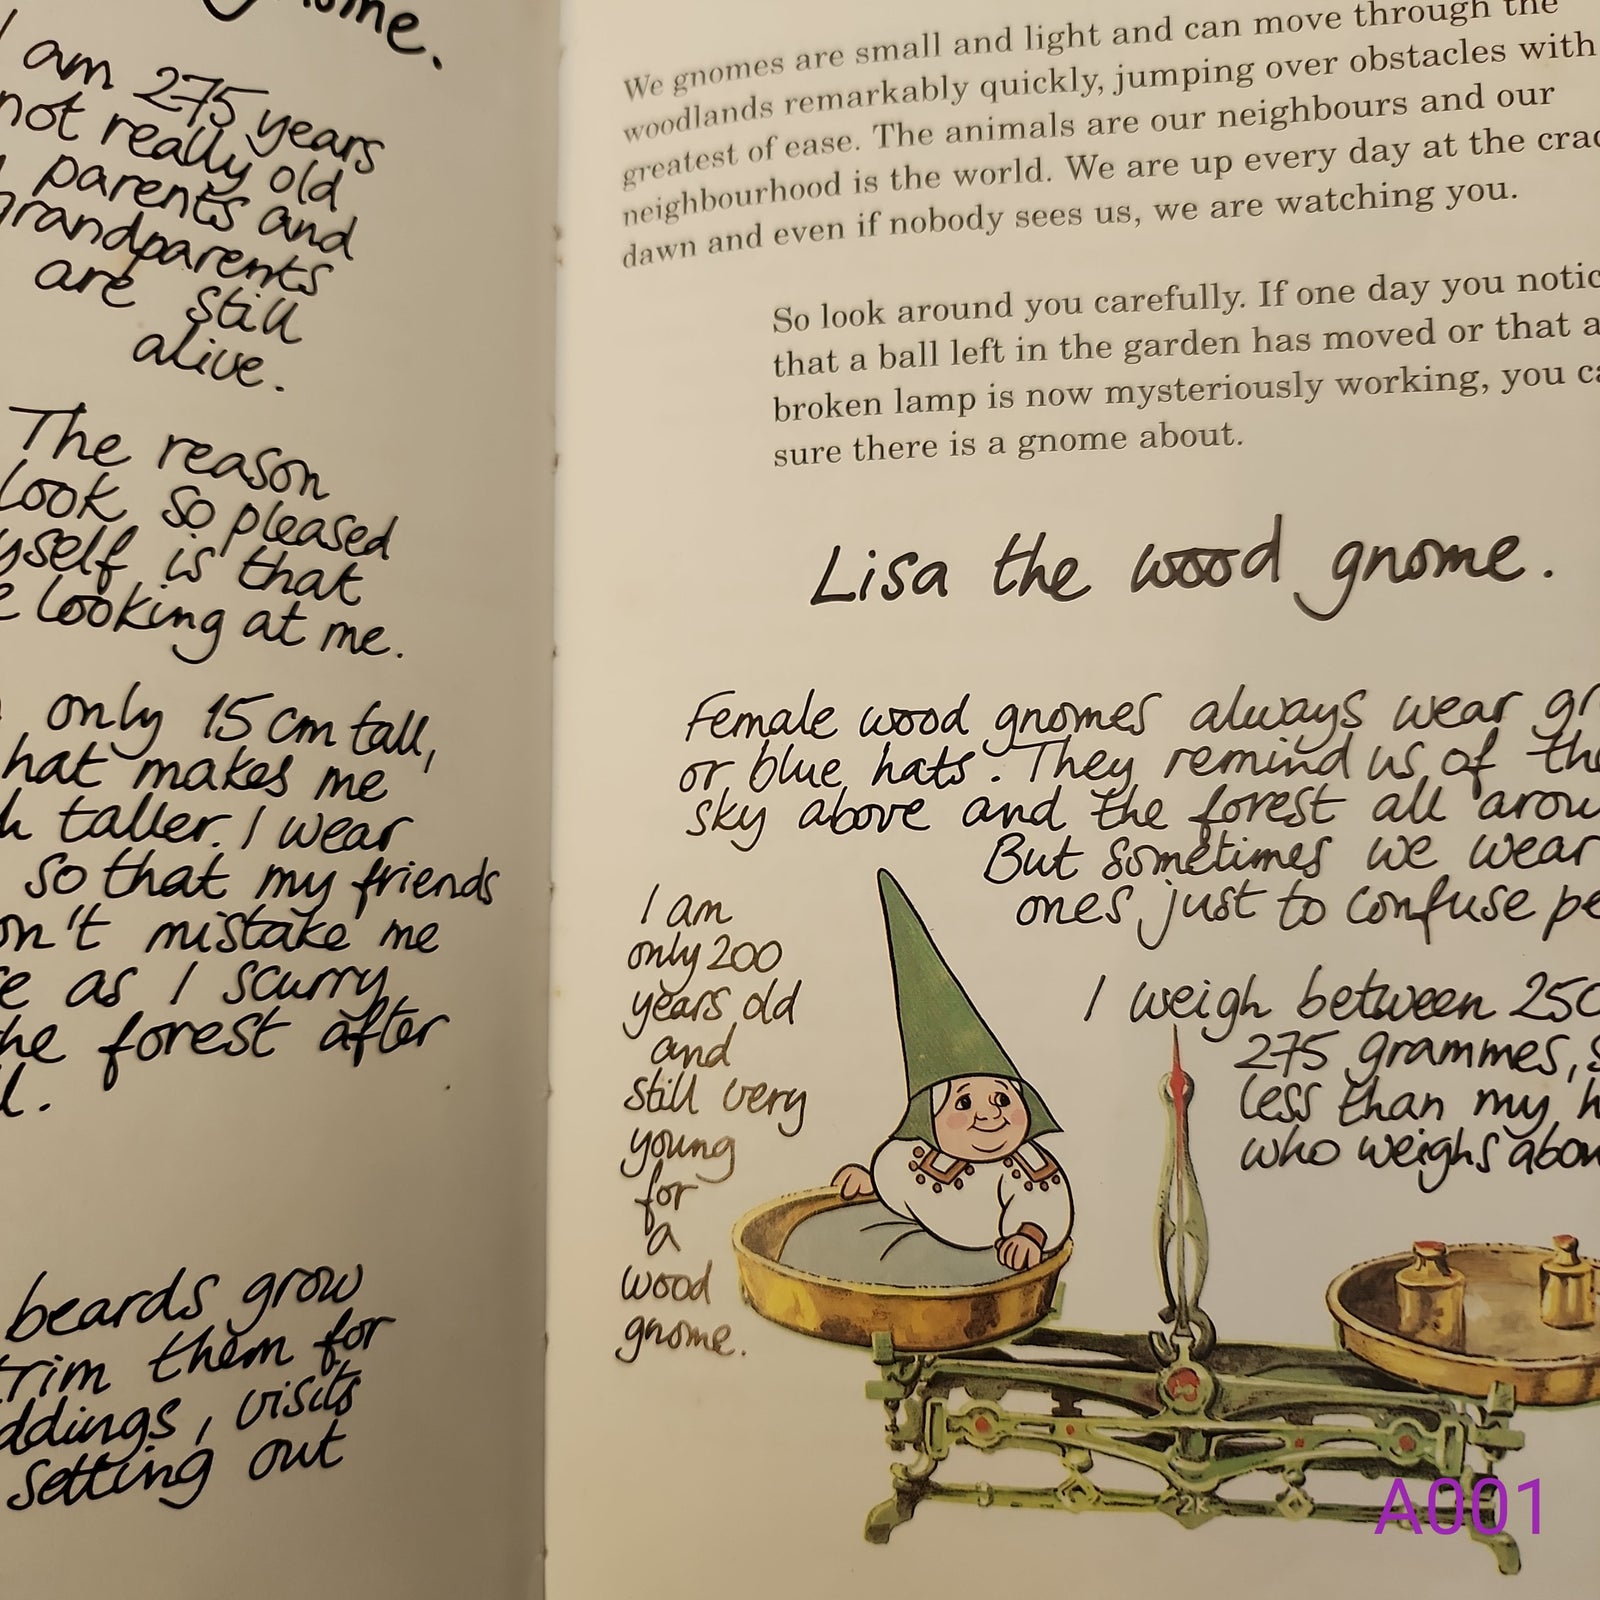 am 275 years
not really old
parents and
grandparents
are still
alive.
The reason
look so pleased
is that
looking at me.
only 15 cm tall,
hat makes me
taller. I wear
so that my friends
mistake me
as I scurry
forest after
beards grow
trim them for
visits
setting out
We gnomes are small and light and can move through the
woodlands remarkably quickly, jumping over obstacles with
greatest of ease. The animals are our neighbours and our
neighbourhood is the world. We are up every day at the
dawn and even if nobody sees us, we are watching you.
So look around you carefully. If one day you
that a ball left in the garden has moved or that a
broken lamp is now mysteriously working, you
sure there is a gnome about.
Lisa the wood gnome.
Female wood gnomes always wear
or blue hats. They remind us of
sky above and the forest all
But sometimes we wear
ones just to confuse
I am
only 200
years old
and
still very
young
for
a
wood
gnome.
I weigh between
275 grammes,
less than my
who weighs
2K
A001